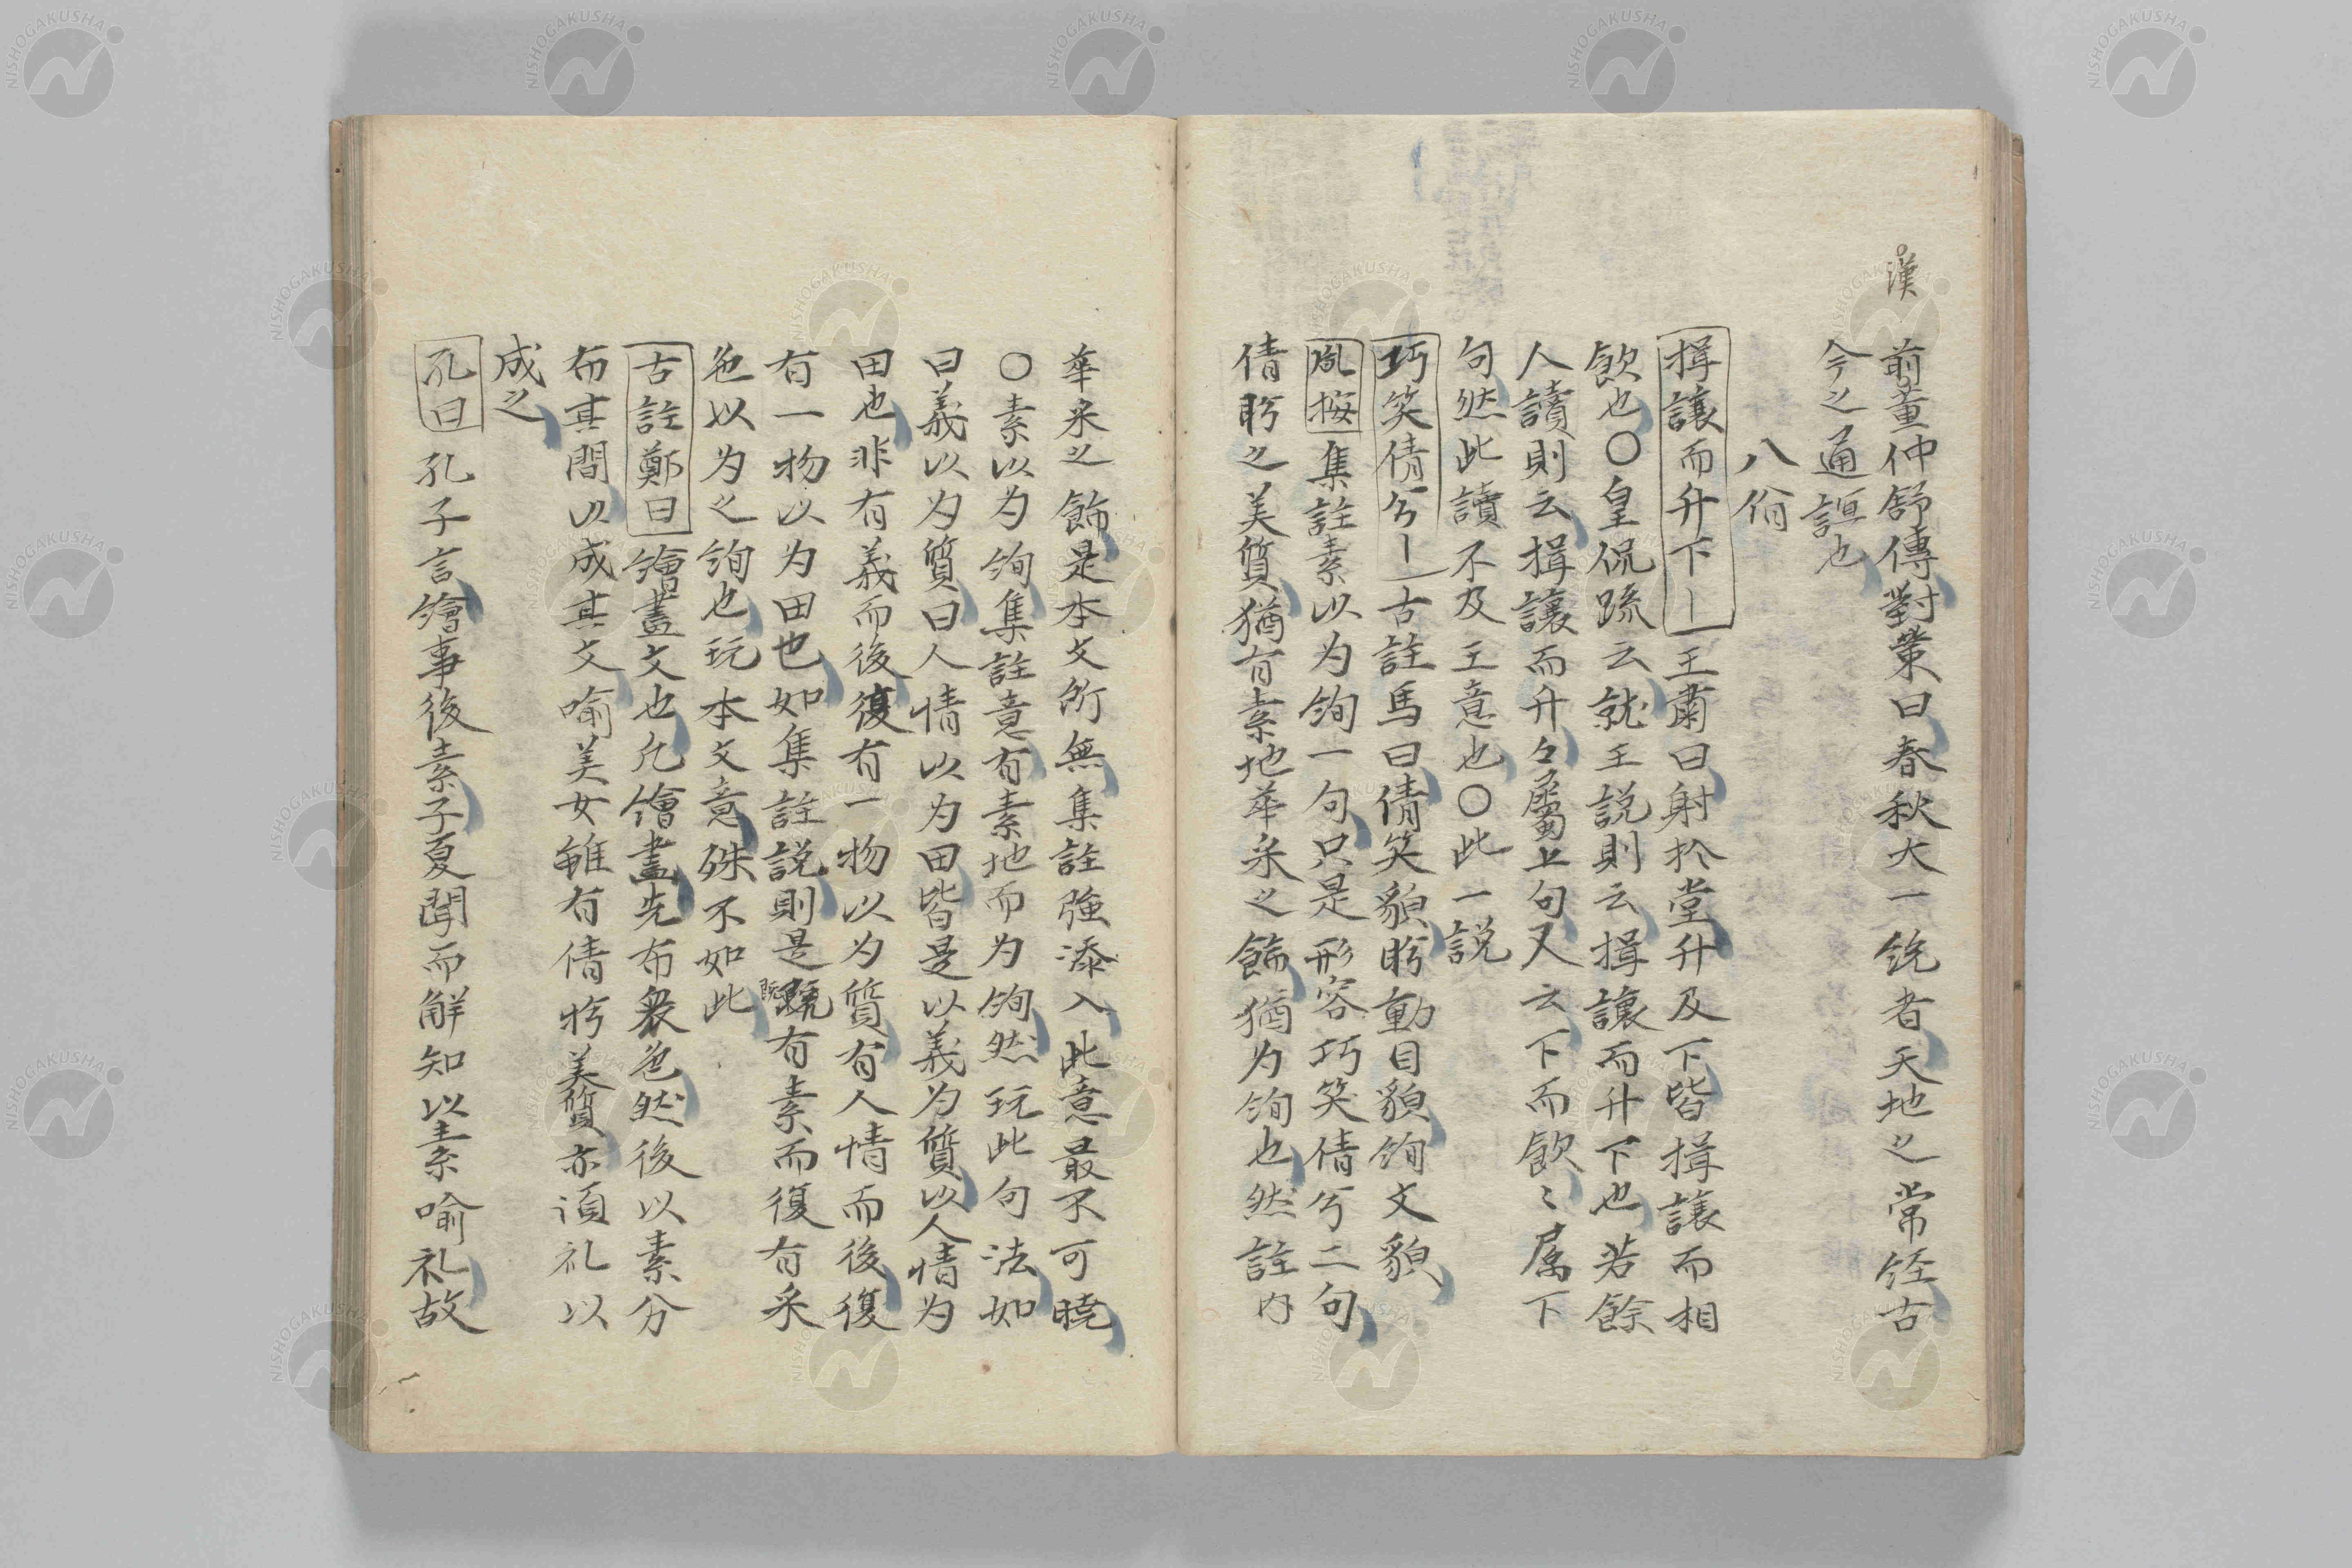 漢
前董仲舒傳對策曰春秋大一統者天地之常経古
今之通誼也
八佾
揖讓而升下〡王肅曰射於堂升及下皆揖讓而相
飲也〇皇侃疏云就王説則云揖讓而升下也若餘
人讀則云揖讓而升々屬上句又云下而飲〻属下
句然此讀不及王意也〇此一説
巧笑倩兮〡古註馬曰倩笑貌盻動目貌絢文貌
夙按集註素以为絢一句只是形容巧笑倩兮二句
倩盻之美質猶有素地華采之餙猶为絢也然註内
華采之餙是本文所無集註強添入此意最不可暁
〇素以为絢集註意有素地而为絢然玩此句法如
曰義以为質曰人情以为田皆是以義为質以人情为
田也非有義而後復有一物以为質有人情而後復
有一物以为田也如集註説則是既有素而復有采
色以为之絢也玩本文意殊不如此
既
古註鄭曰繪畫文也凢繪畫先布衆色然後以素分
布其間以成其文喻美女雖有倩盻美質亦須礼以
成之
孔曰孔子言繪事後素子夏聞而解知以素喻礼故